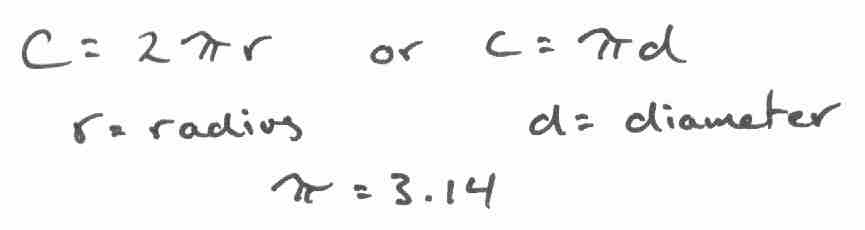 C = 2πr or C = πd
r = radius d = diameter
π = 3.14